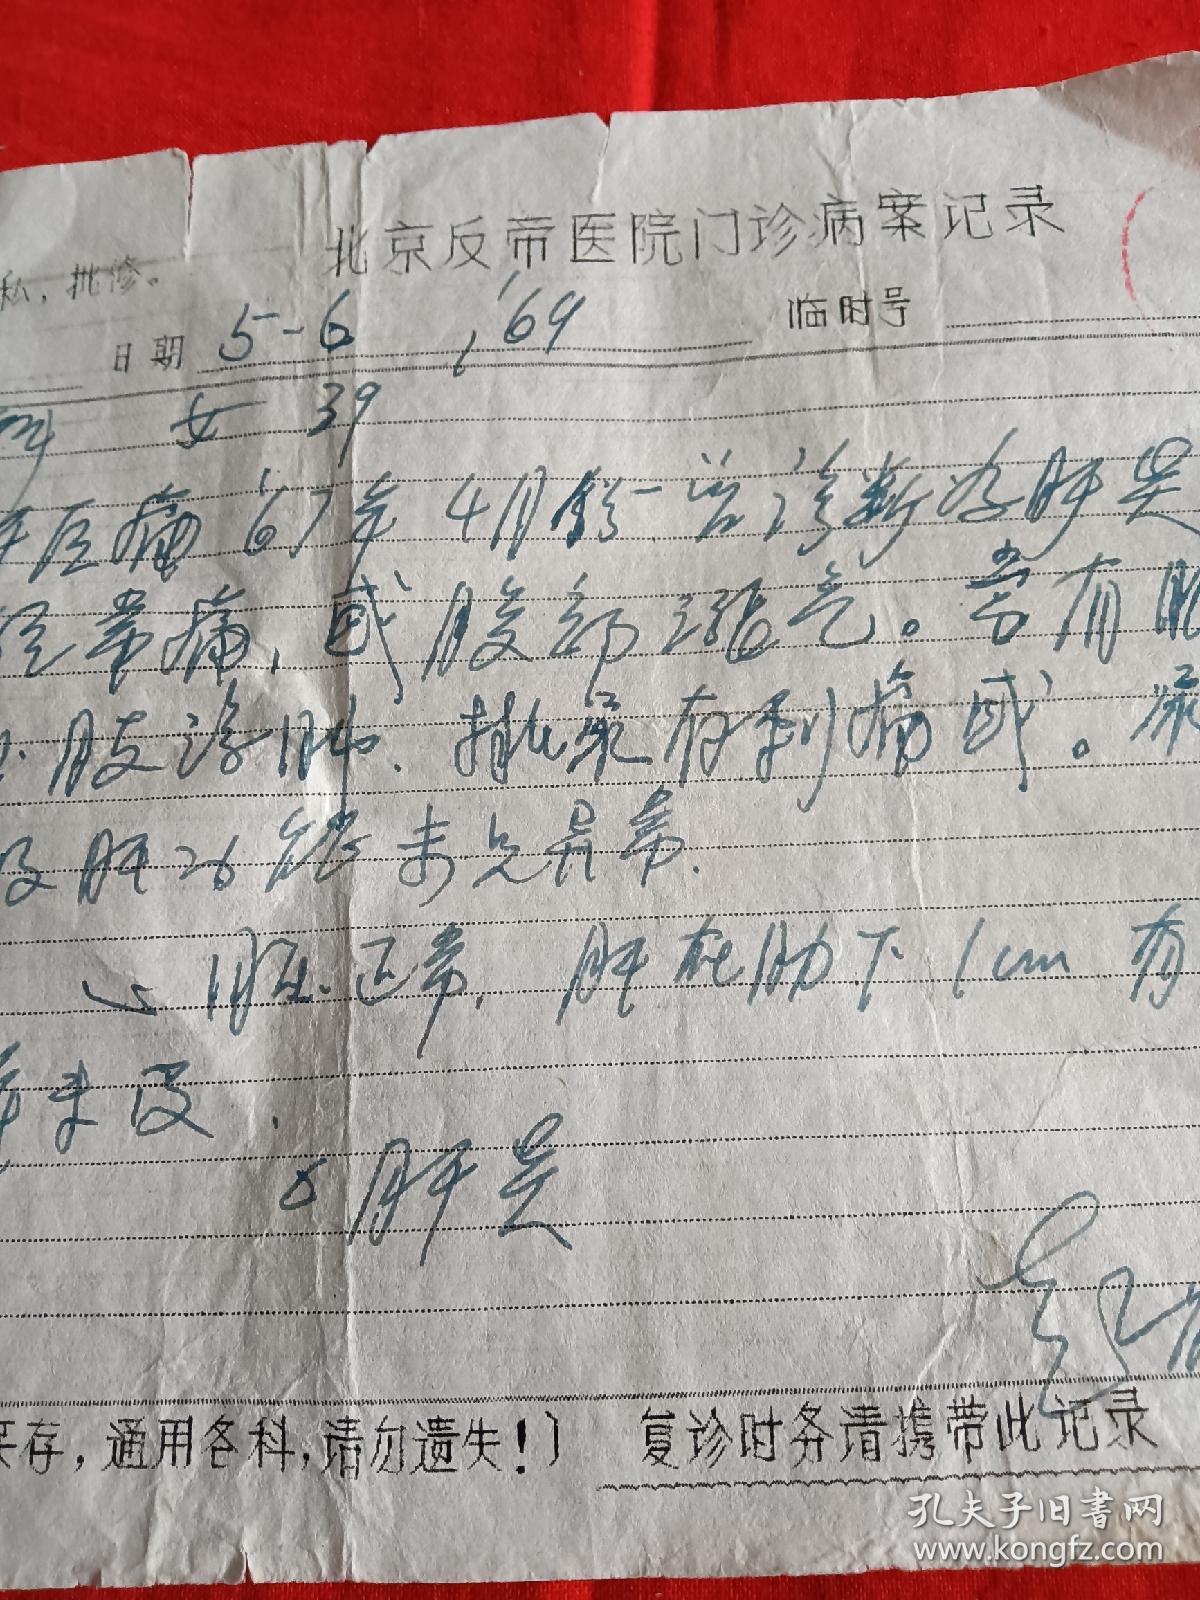 北京反帝医院门诊病案记录
私，批修。
日期 5-6, '69 临时号
女 39
区痛 '67年4月份曾诊断为肝炎
经常痛，感腹部涨气。
肢浮肿、排尿有刺痛感。尿
及肝功能未见异常.
心脏正常，肝在肋下1cm 有
未及.
肝炎
存，通用各科，请勿遗失！） 复诊时务请携带此记录
孔夫子旧书网
www.kongfz.com